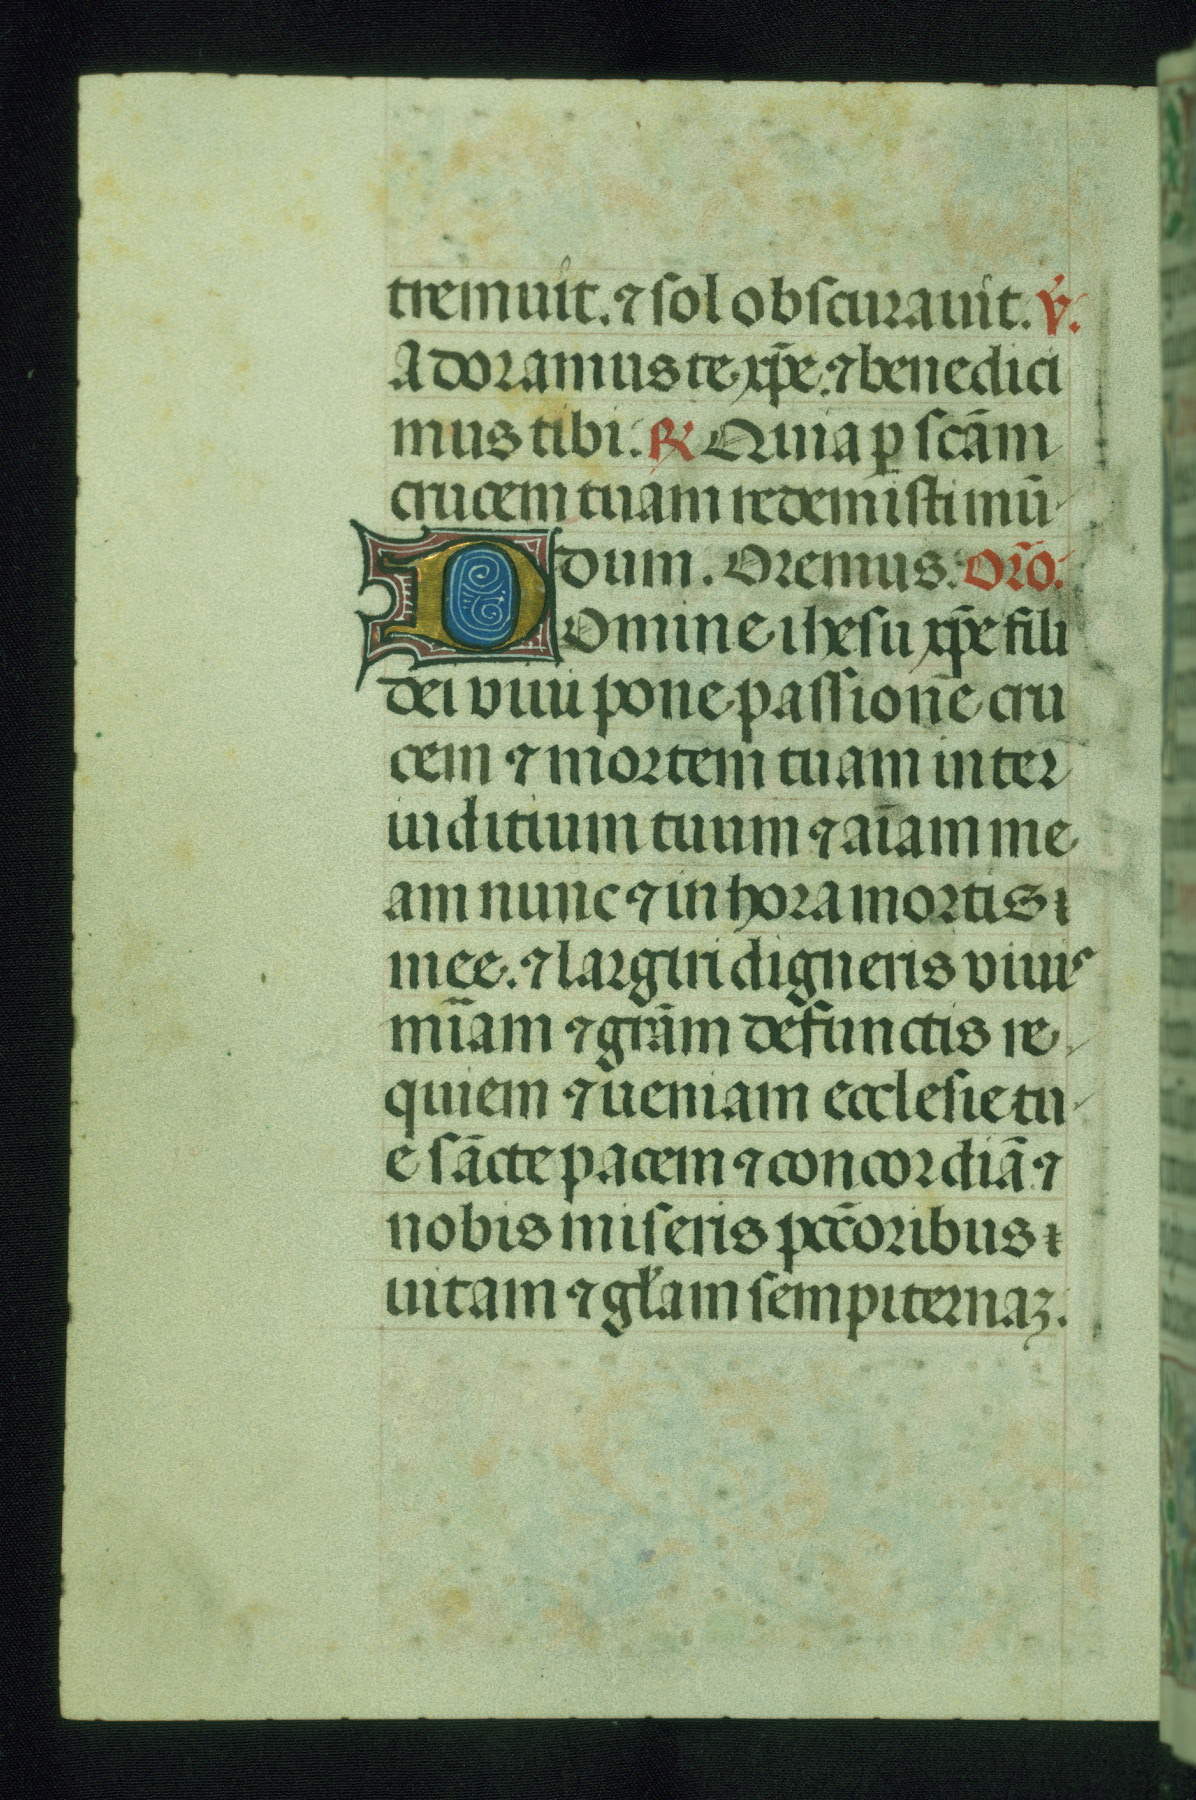 tremuit. ⁊ sol obscurauit. v̓.
Adoramus te xp̄e. ⁊ benedici
mus tibi. ℟ Quia ꝑ scām
crucem tuam redemisti mū
dum. Oremus. Orō.
Domine ihesu xp̄e fili
dei viui pone passionē cru
cem ⁊ mortem tuam inter
iuditium tuum ⁊ aīam me
am nunc ⁊ in hora mortis
mee. ⁊ largiri digneris viuis
mīam ⁊ grām defunctis re
quiem ⁊ ueniam ecclesie tu
e sācte pacem ⁊ concordiā ⁊
nobis miseris pcc̄oribus
uitam ⁊ gl̄am sempiternaꝫ.